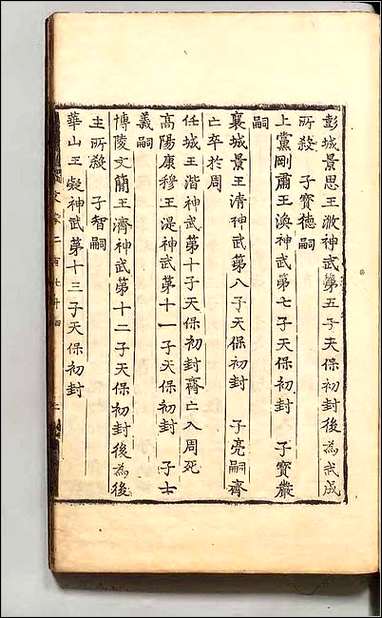 彭城景思王浟神武第五子天保初封後為戎成
所殺 子寶德嗣
上黨剛肅王渙神武第七子天保初封 子寶嚴
嗣
襄城景王淯神武第八子天保初封 子亮嗣齊
亡卒於周
任城王湝神武第十子天保初封齊亡入周死
高陽康穆王湜神武第十一子天保初封 子士
義嗣
博陵文簡王濟神武第十二子天保初封後為後
主所殺 子智嗣
華山王凝神武第十三子天保初封